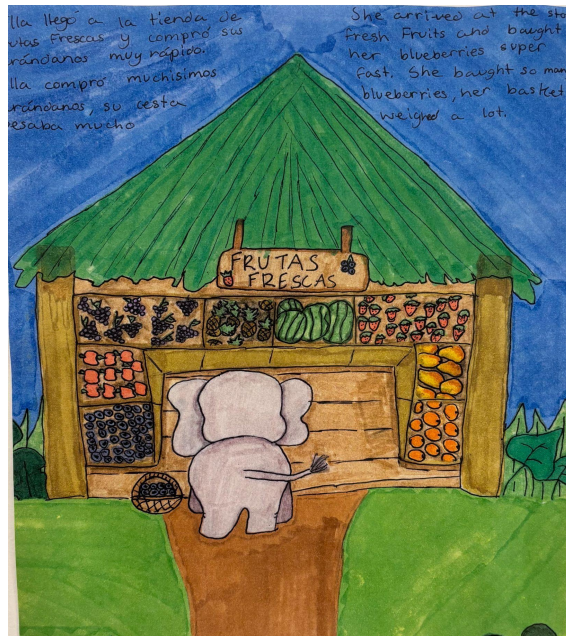 lla llegó a la tienda de
utas Frescas y compró sus
rándanos muy rápido.
lla compró muchísimos
rándanos, su cesta
esaba mucho
She arrived at the sto
fresh Fruits and baught
her blueberries super
fast. She baught so man
blueberries, her basket
weighed a lot.
FRUTAS
FRESCAS